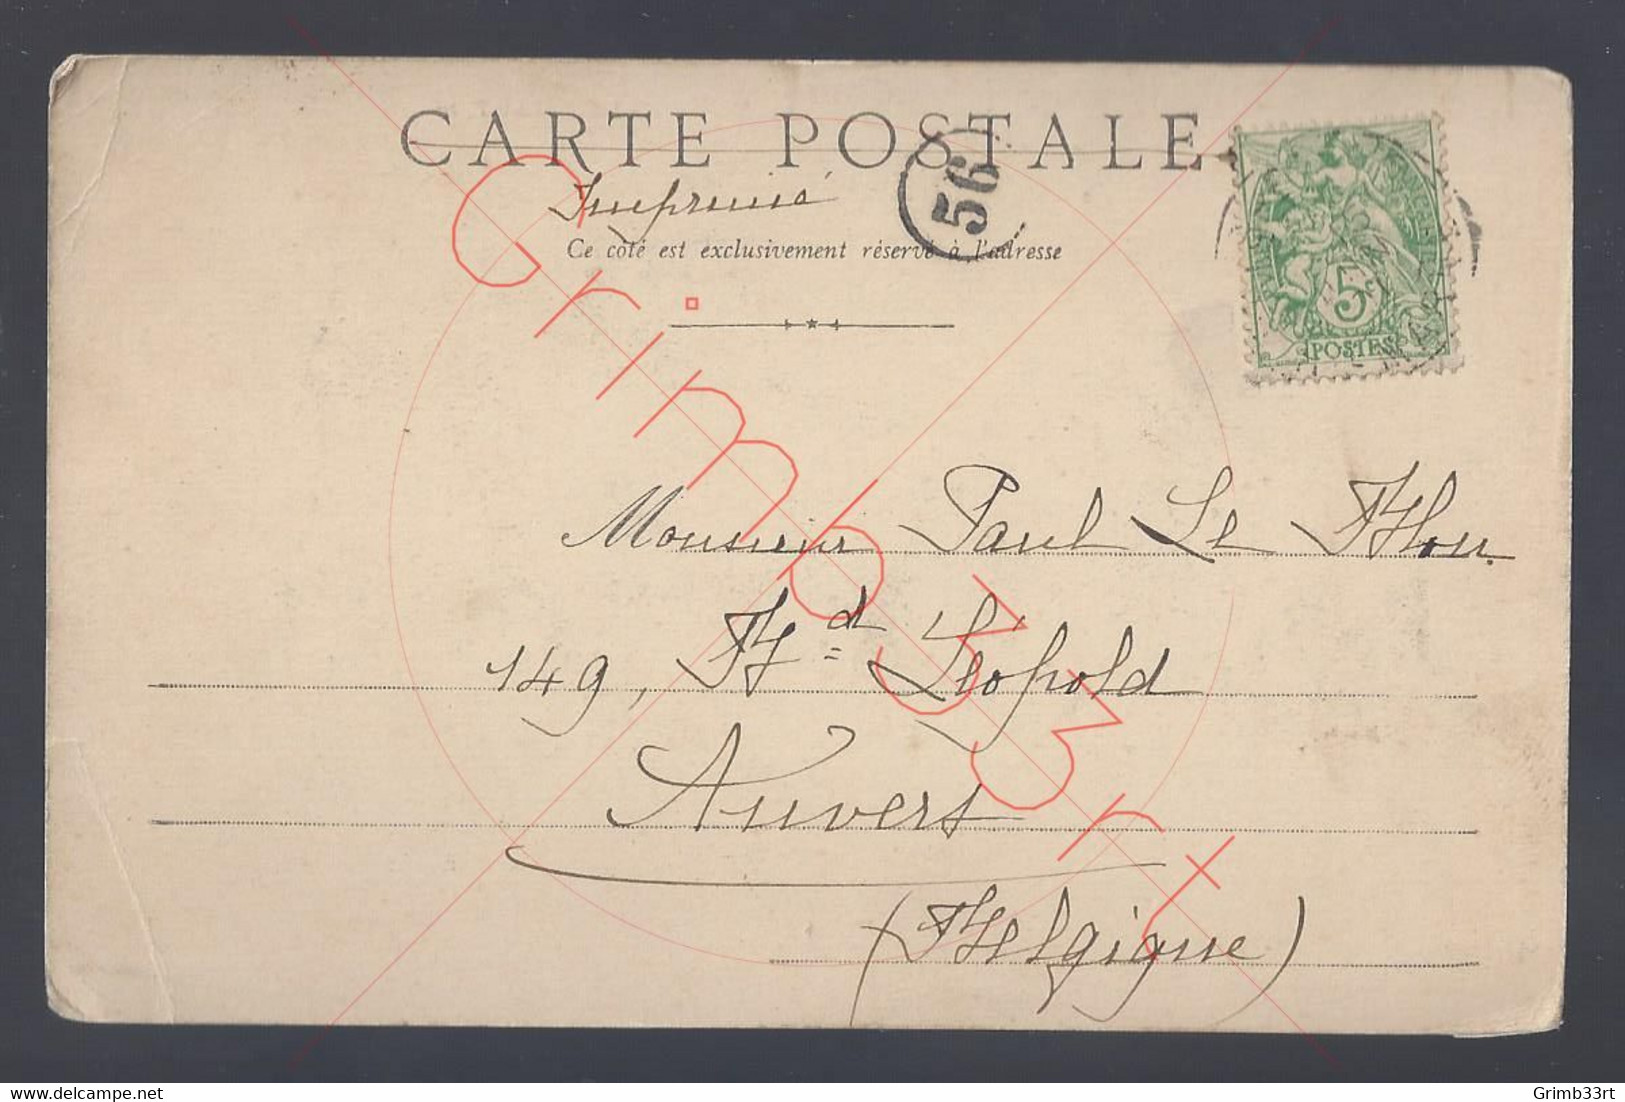 CARTE POSTALE
Imprimé
56
Ce côté est exclusivement réservé à l'adresse
5c
POSTES
Monsieur Paul Le
149, Bd Léopold
Anvers
(Belgique)
Grimb33rt
delcampe.net
Grimb33rt